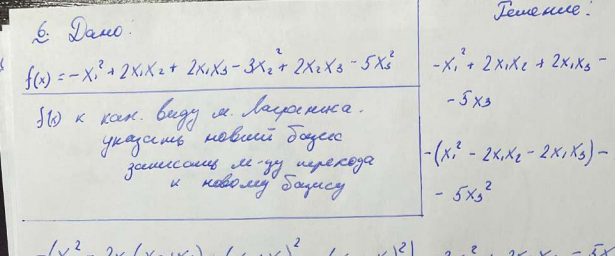 6. Дано.
f(x) = -x₁² + 2x₁x₂ + 2x₁x₃ - 3x₂² + 2x₂x₃ - 5x₃²
f(x) к кан. виду м. Лагранжа.
указать новый базис
записать м-цу перехода
к новому базису
Решение:
-x₁² + 2x₁x₂ + 2x₁x₃ -
- 5x₃
-(x₁² - 2x₁x₂ - 2x₁x₃) -
- 5x₃²